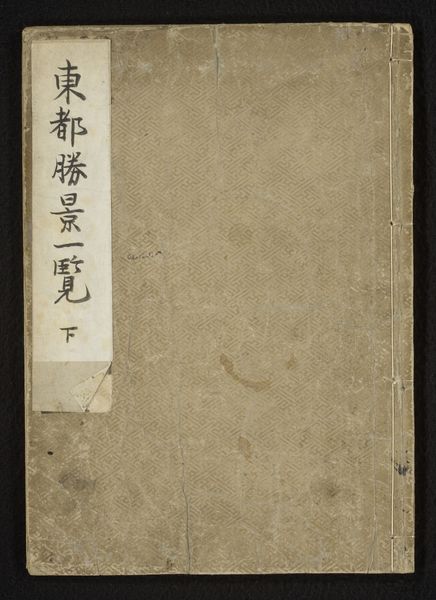 東都勝景一覧
下